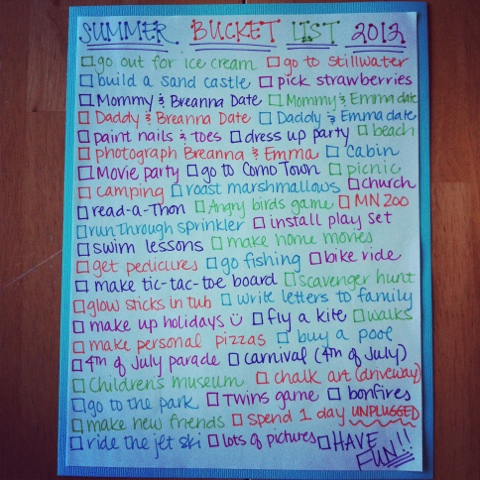 SUMMER BUCKET LIST 2012
go out for ice cream go to stillwater
build a sand castle pick strawberries
Mommy & Breanna Date Mommy & Emma date
Daddy & Breanna Date Daddy & Emma date
paint nails & toes dress up party beach
photograph Breanna & Emma Cabin
Movie party go to Como Town picnic
camping roast marshmallows church
read-a-Thon Angry birds game MN ZOO
run through sprinkler install play set
swim lessons make home movies
get pedicures go fishing bike ride
make tic-tac-toe board scavenger hunt
glow sticks in tub write letters to family
make up holidays fly a kite walks
make personal pizzas buy a pool
4th of July parade carnival (4th of July)
Children's museum chalk art (driveway)
go to the park Twins game bonfires
make new friends spend 1 day UNPLUGGED
ride the jet ski lots of pictures HAVE
FUN!!